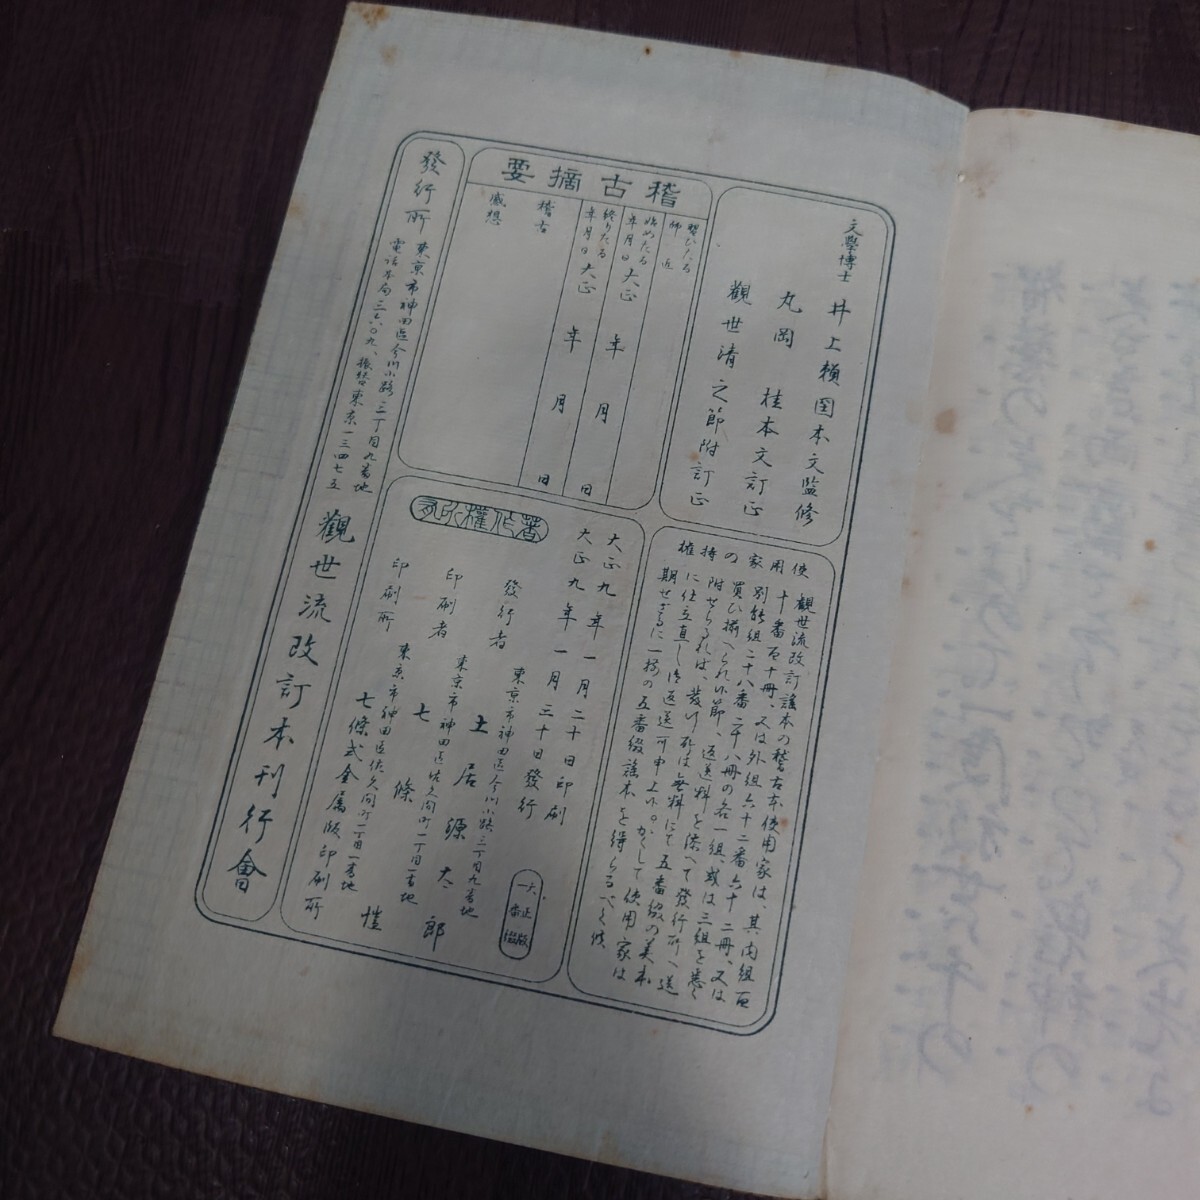 文學博士 井上賴圀本文監修
丸岡 桂本文訂正
觀世清之節附訂正
稽古摘要
習ひたる師匠
始めたる年月日 大正 年 月 日
終りたる年月日 大正 年 月 日
稽古
感想
觀世流改訂謠本の稽古本使用家は、其内組百
十番百十冊、又は外組六十二番六十二冊、又は
別能組二十八番二十八冊の各一組、或は三組を悉く
買ひ揃へられ候節、返送料を添へて發行所へ送
附せらるれば、發行所は無料にて五番綴の美本
に仕立直し御返送可申上候。かくして使用家は
期せずに一揃の五番綴謠本を得らるべく候
大正九年一月二十日印刷
大正九年一月三十日發行
大正版
一番綴
著作權所有
發行者 東京市神田區今川小路二丁目九番地
土居源太郎
印刷者 東京市神田區佐久間町一丁目一番地
七條愷
印刷所 東京市神田區佐久間町一丁目一番地
七條式金属版印刷所
發行所 東京市神田區今川小路二丁目九番地
電話本局三六〇九、振替東京一三四七五
觀世流改訂本刊行會